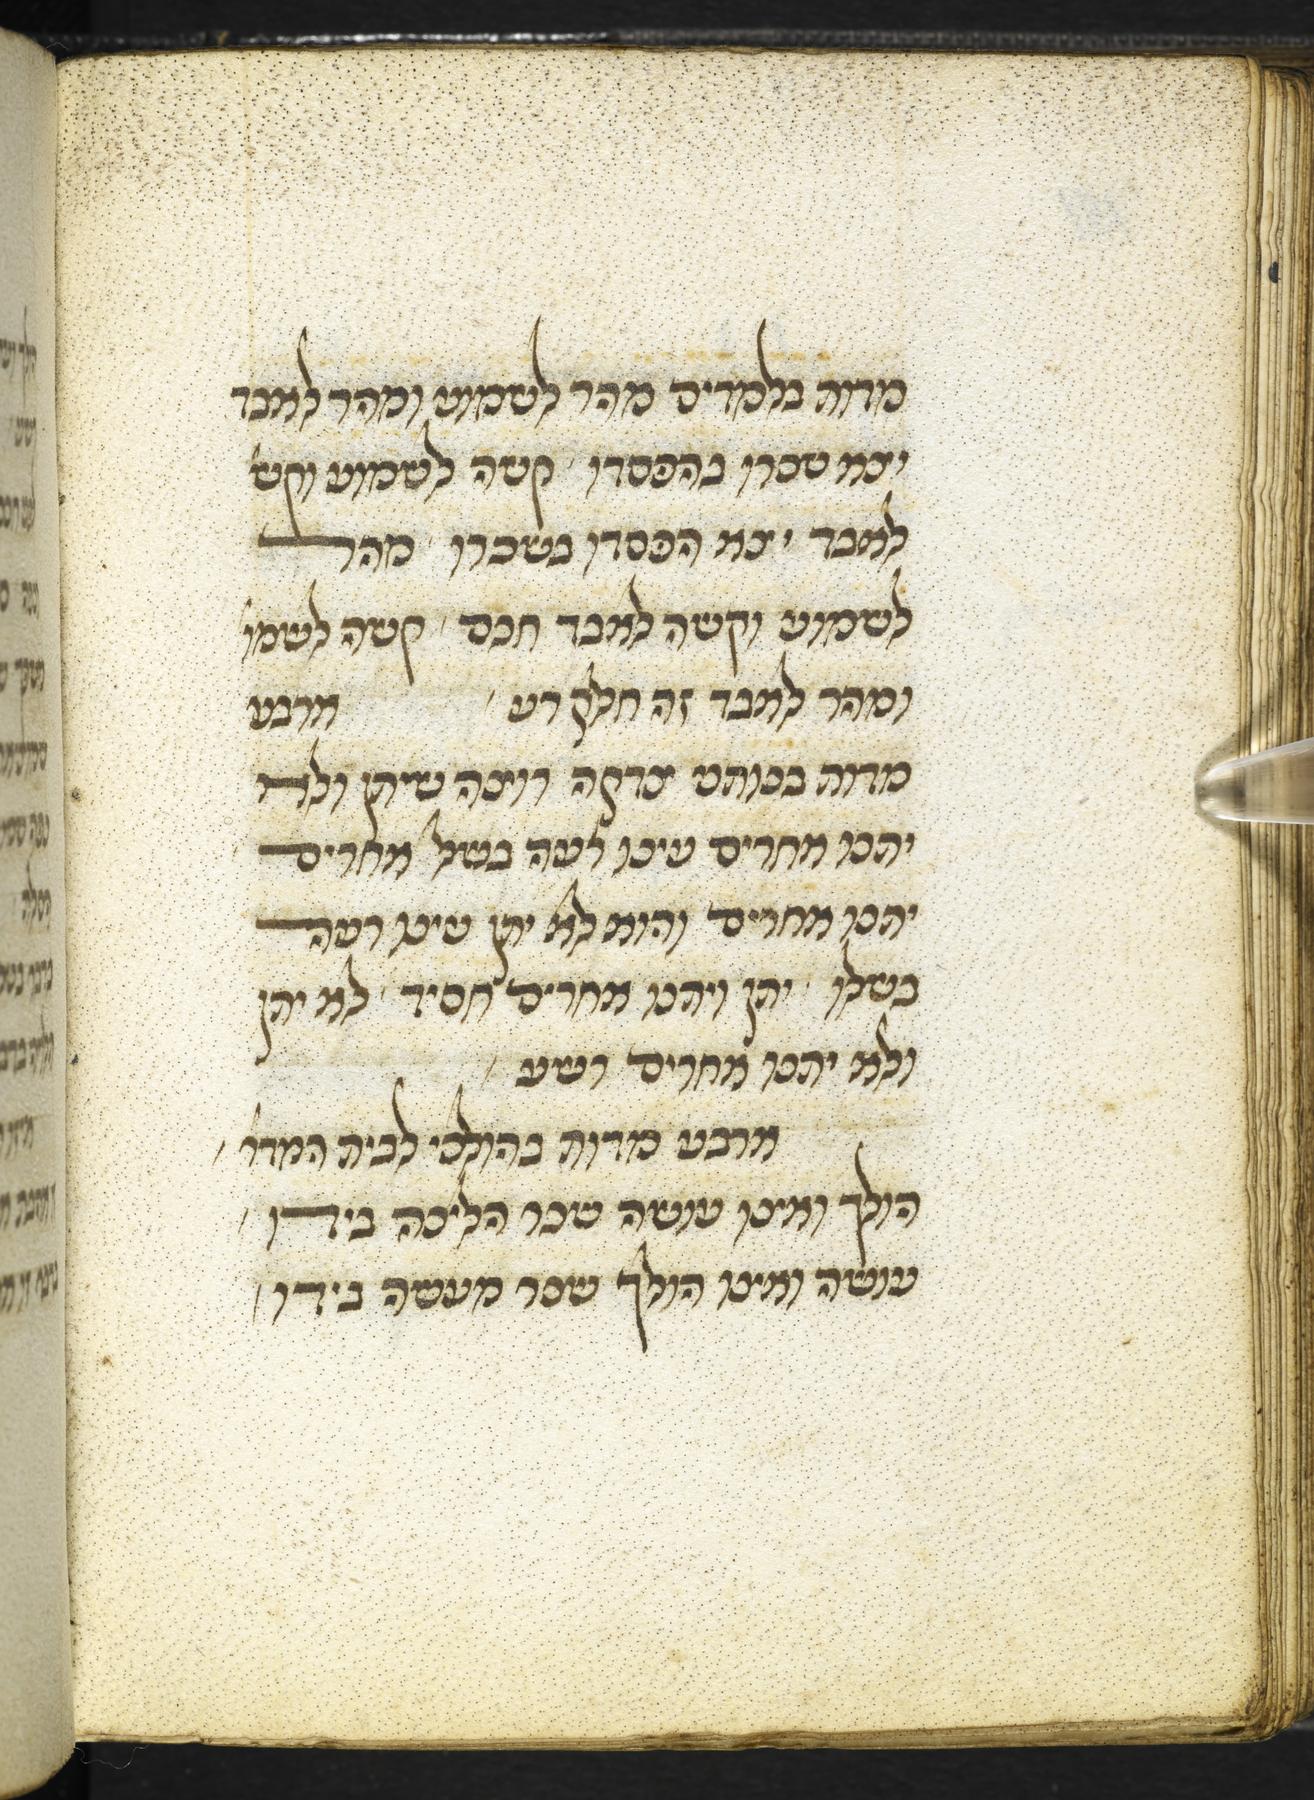 מדות בלמדים מהר לשמוע ומהר לאבד
יצא שכרו בהפסדו קשה לשמוע וקש'
לאבד יצא הפסדו בשכרו מהר
לשמוע וקשה לאבד חכם קשה לשמו'
ומהר לאבד זה חלק רע ארבע
מדות בנותני צדקה רוצה שיתן ולא
יתנו אחרים עינו רעה בשל אחרים
יתנו אחרים והוא לא יתן עינו רעה
בשלו יתן ויתנו אחרים חסיד לא יתן
ולא יתנו אחרים רשע
ארבע מדות בהולכי לבית המדר'
הולך ואינו עושה שכר הליכה בידו
עושה ואינו הולך שכר מעשה בידו